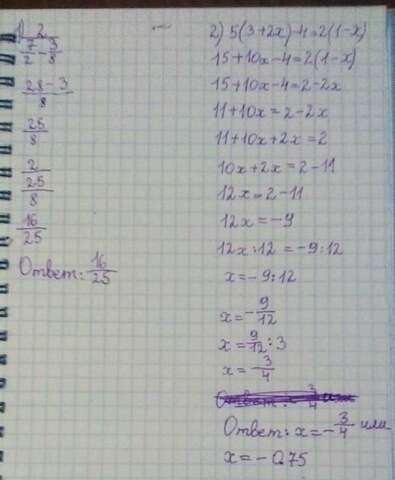 1) 2
7/2 - 3/8
28-3
8
25
8
2
25
8
16
25
Ответ: 16/25
2) 5(3+2x)-4=2(1-x)
15+10x-4=2(1-x)
15+10x-4=2-2x
11+10x=2-2x
11+10x+2x=2
10x+2x=2-11
12x=2-11
12x=-9
12x:12=-9:12
x=-9:12
x=-9/12
x=9/12:3
x=-3/4
Ответ: x=-3/4 или
x=-0,75